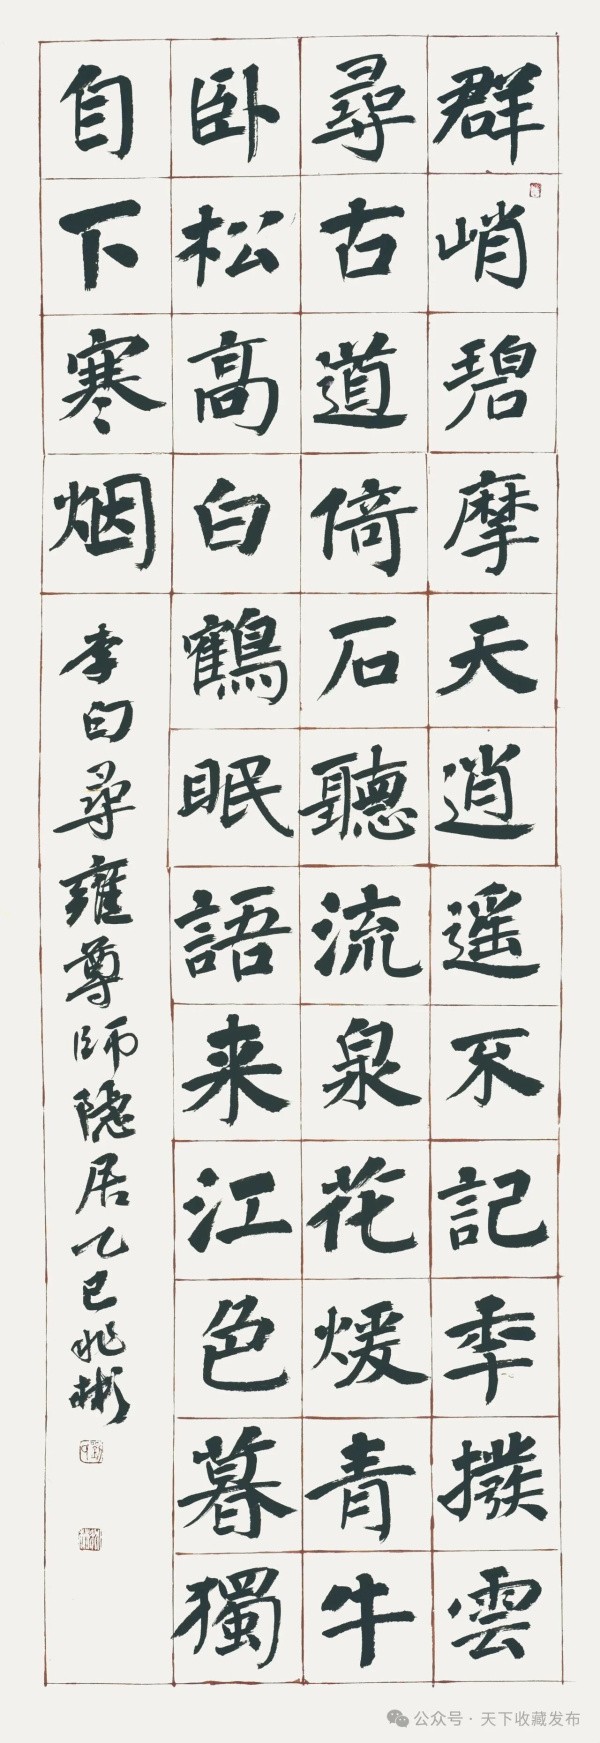 群峭碧摩天逍遥不記年撥雲
尋古道倚石聽流泉花煖青牛
卧松高白鶴眠語来江色暮獨
自下寒烟
李白尋雍尊師隐居乙巳兆彬
公众号·天下收藏发布